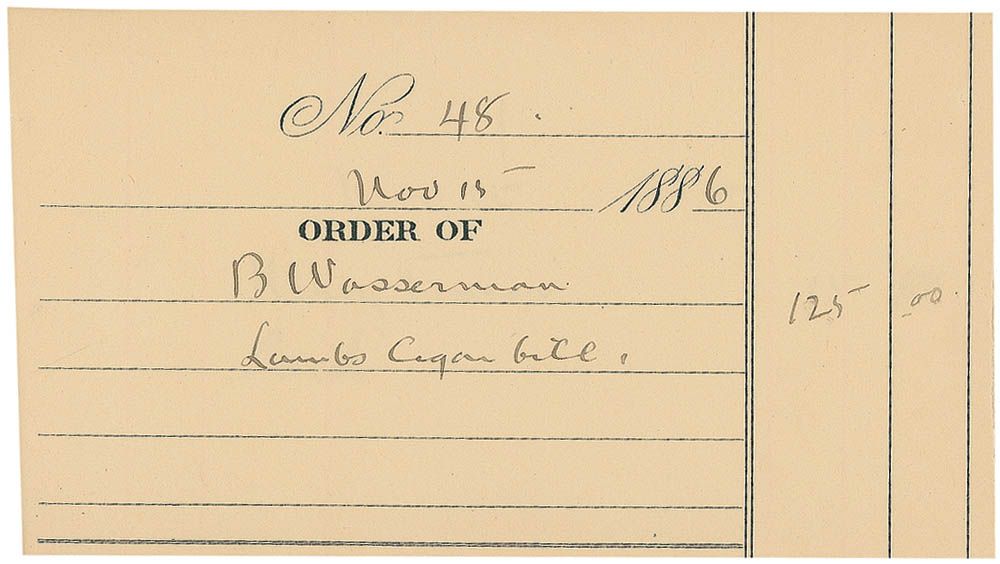 No. 48.
Nov 15 1886
ORDER OF
B Wasserman
125 00.
Lambs Cigar bill.